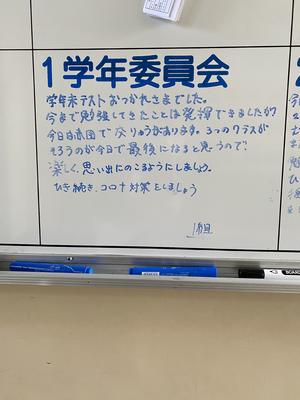 1学年委員会
学年末テストおつかれさまでした。
今まで勉強してきたことは発揮できましたか?
今日は赤団で交りゅうがあります。3つのクラスが
そろうのが今日で最後になると思うので、
楽しく、思い出にのこるようにしましょう。
ひき続き、コロナ対策をしましょう
1組